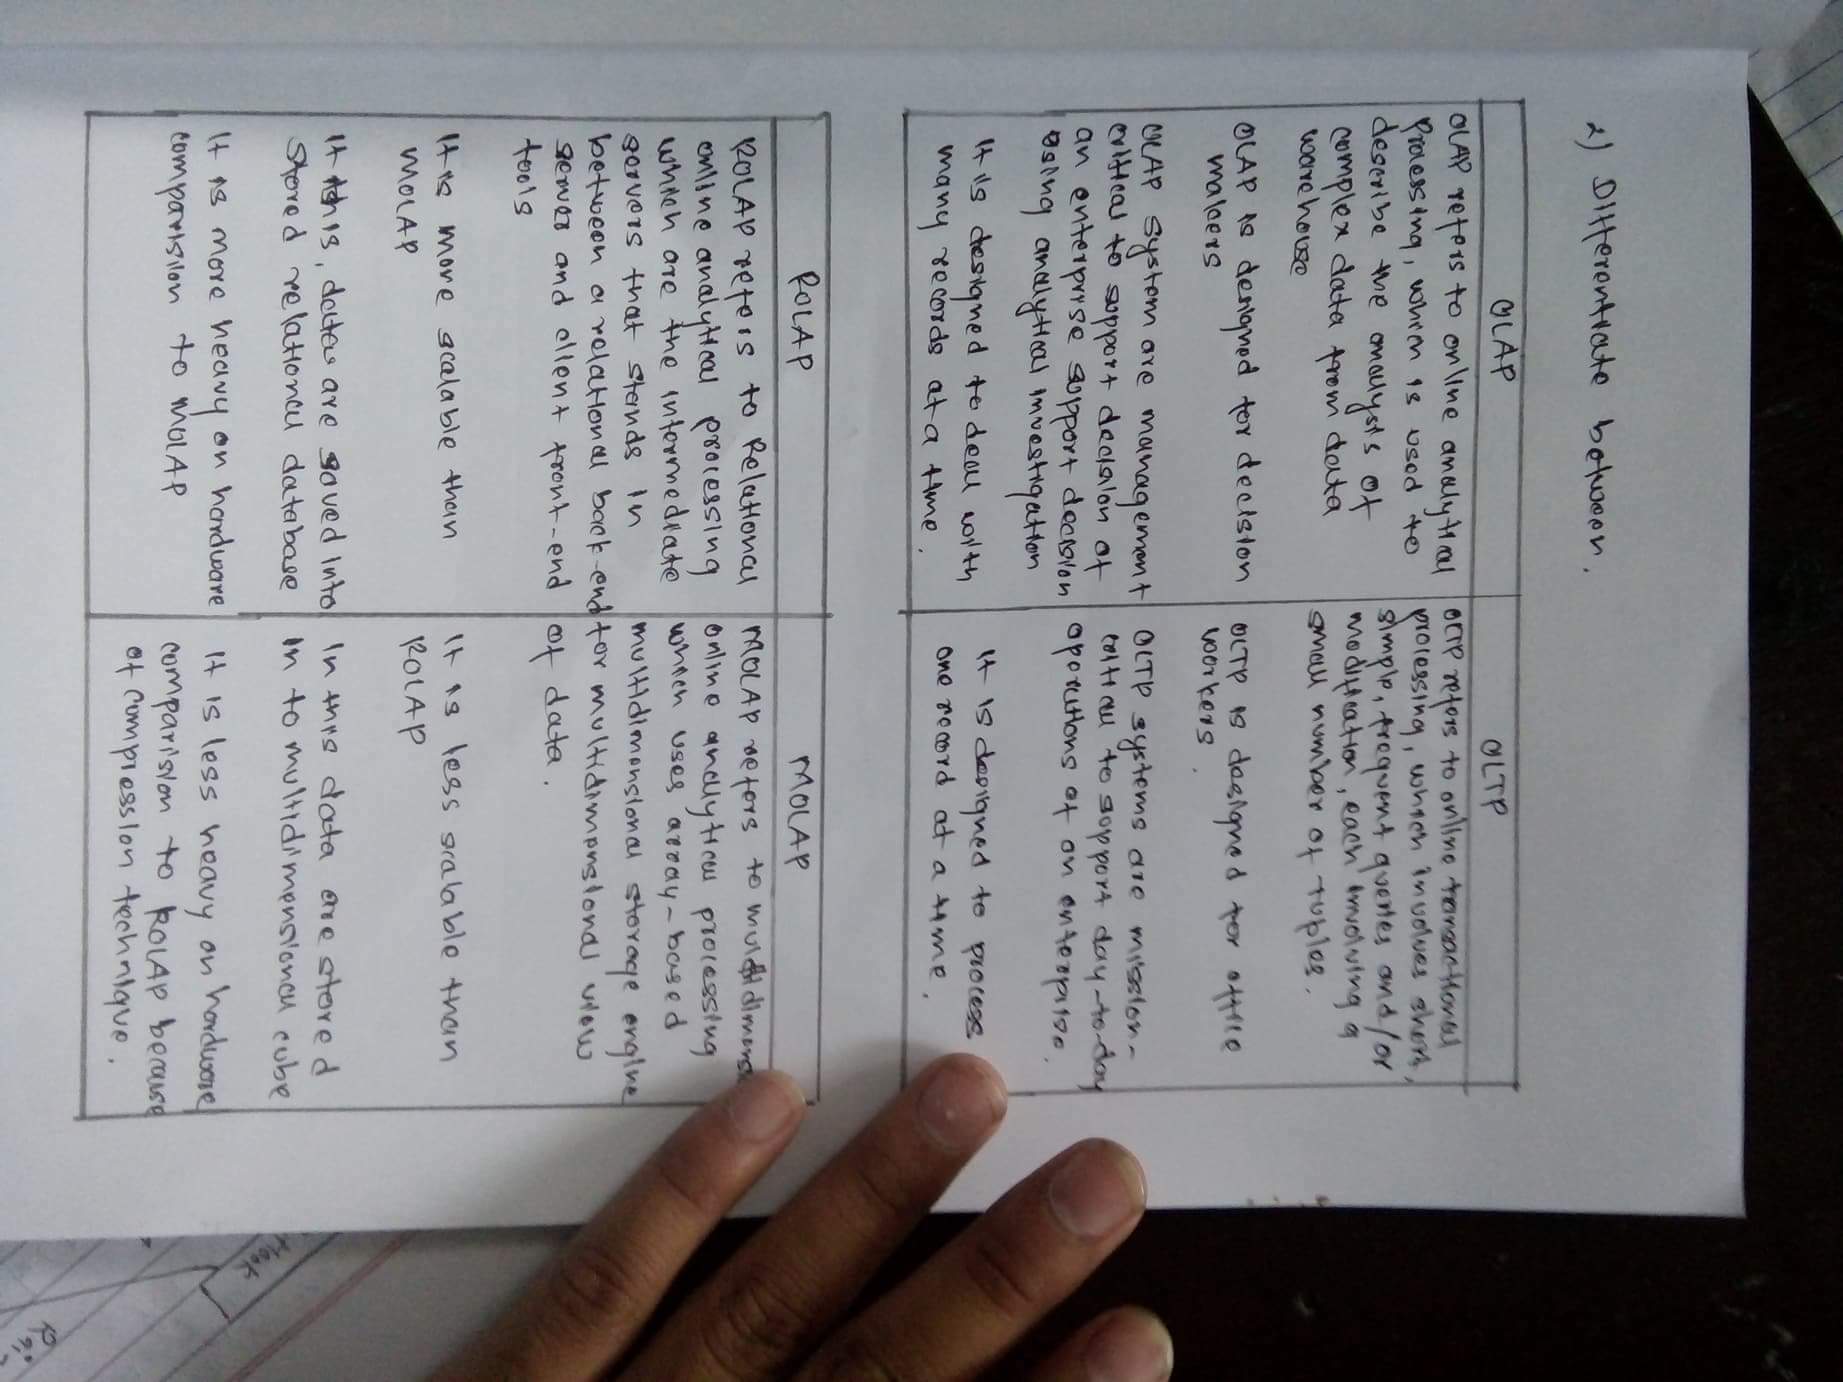 2) Differentiate between.
OLAP
OLTP
OLAP refers to online analytical
processing, which is used to
describe the analysis of
complex data from data
warehouse
OLTP refers to online transactional
processing, which involves short,
simple, frequent queries and/or
modification, each involving a
small number of tuples.
OLAP is designed for decision
makers
OLTP is designed for office
workers.
OLAP system are management
critical to support decision of
an enterprise support decision
using analytical investigation
OLTP systems are mission-
critical to support day-to-day
operations of an enterprise.
It is designed to deal with
many records at a time.
It is designed to process
one record at a time.
ROLAP
MOLAP
ROLAP refers to Relational
online analytical processing
which are the intermediate
servers that stands in
between a relational back-end
server and client front-end
tools
MOLAP refers to multidimens
online analytical processing
which uses array-based
multidimensional storage engine
for multidimensional view
of data.
It is more scalable than
MOLAP
It is less scalable than
ROLAP
It this, data are saved into
stored relational database
In this data are stored
in to multidimensional cube
It is more heavy on hardware
comparision to MOLAP
It is less heavy on hardware
comparision to ROLAP because
of compression technique.